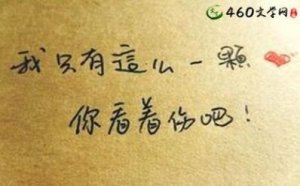 460文学网
我只有這么一顆❤
你看着伤吧！